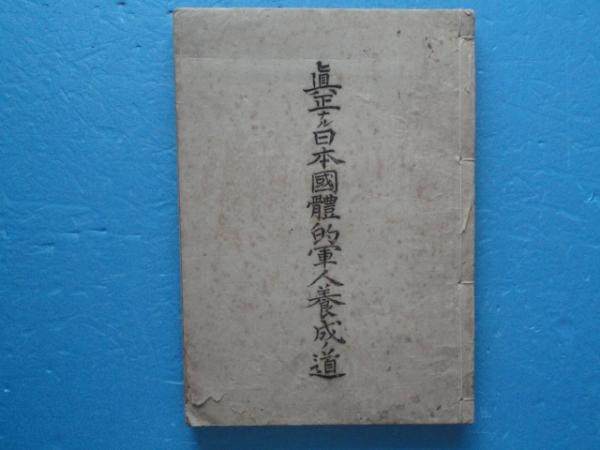 眞正ナル日本國體的軍人養成ノ道